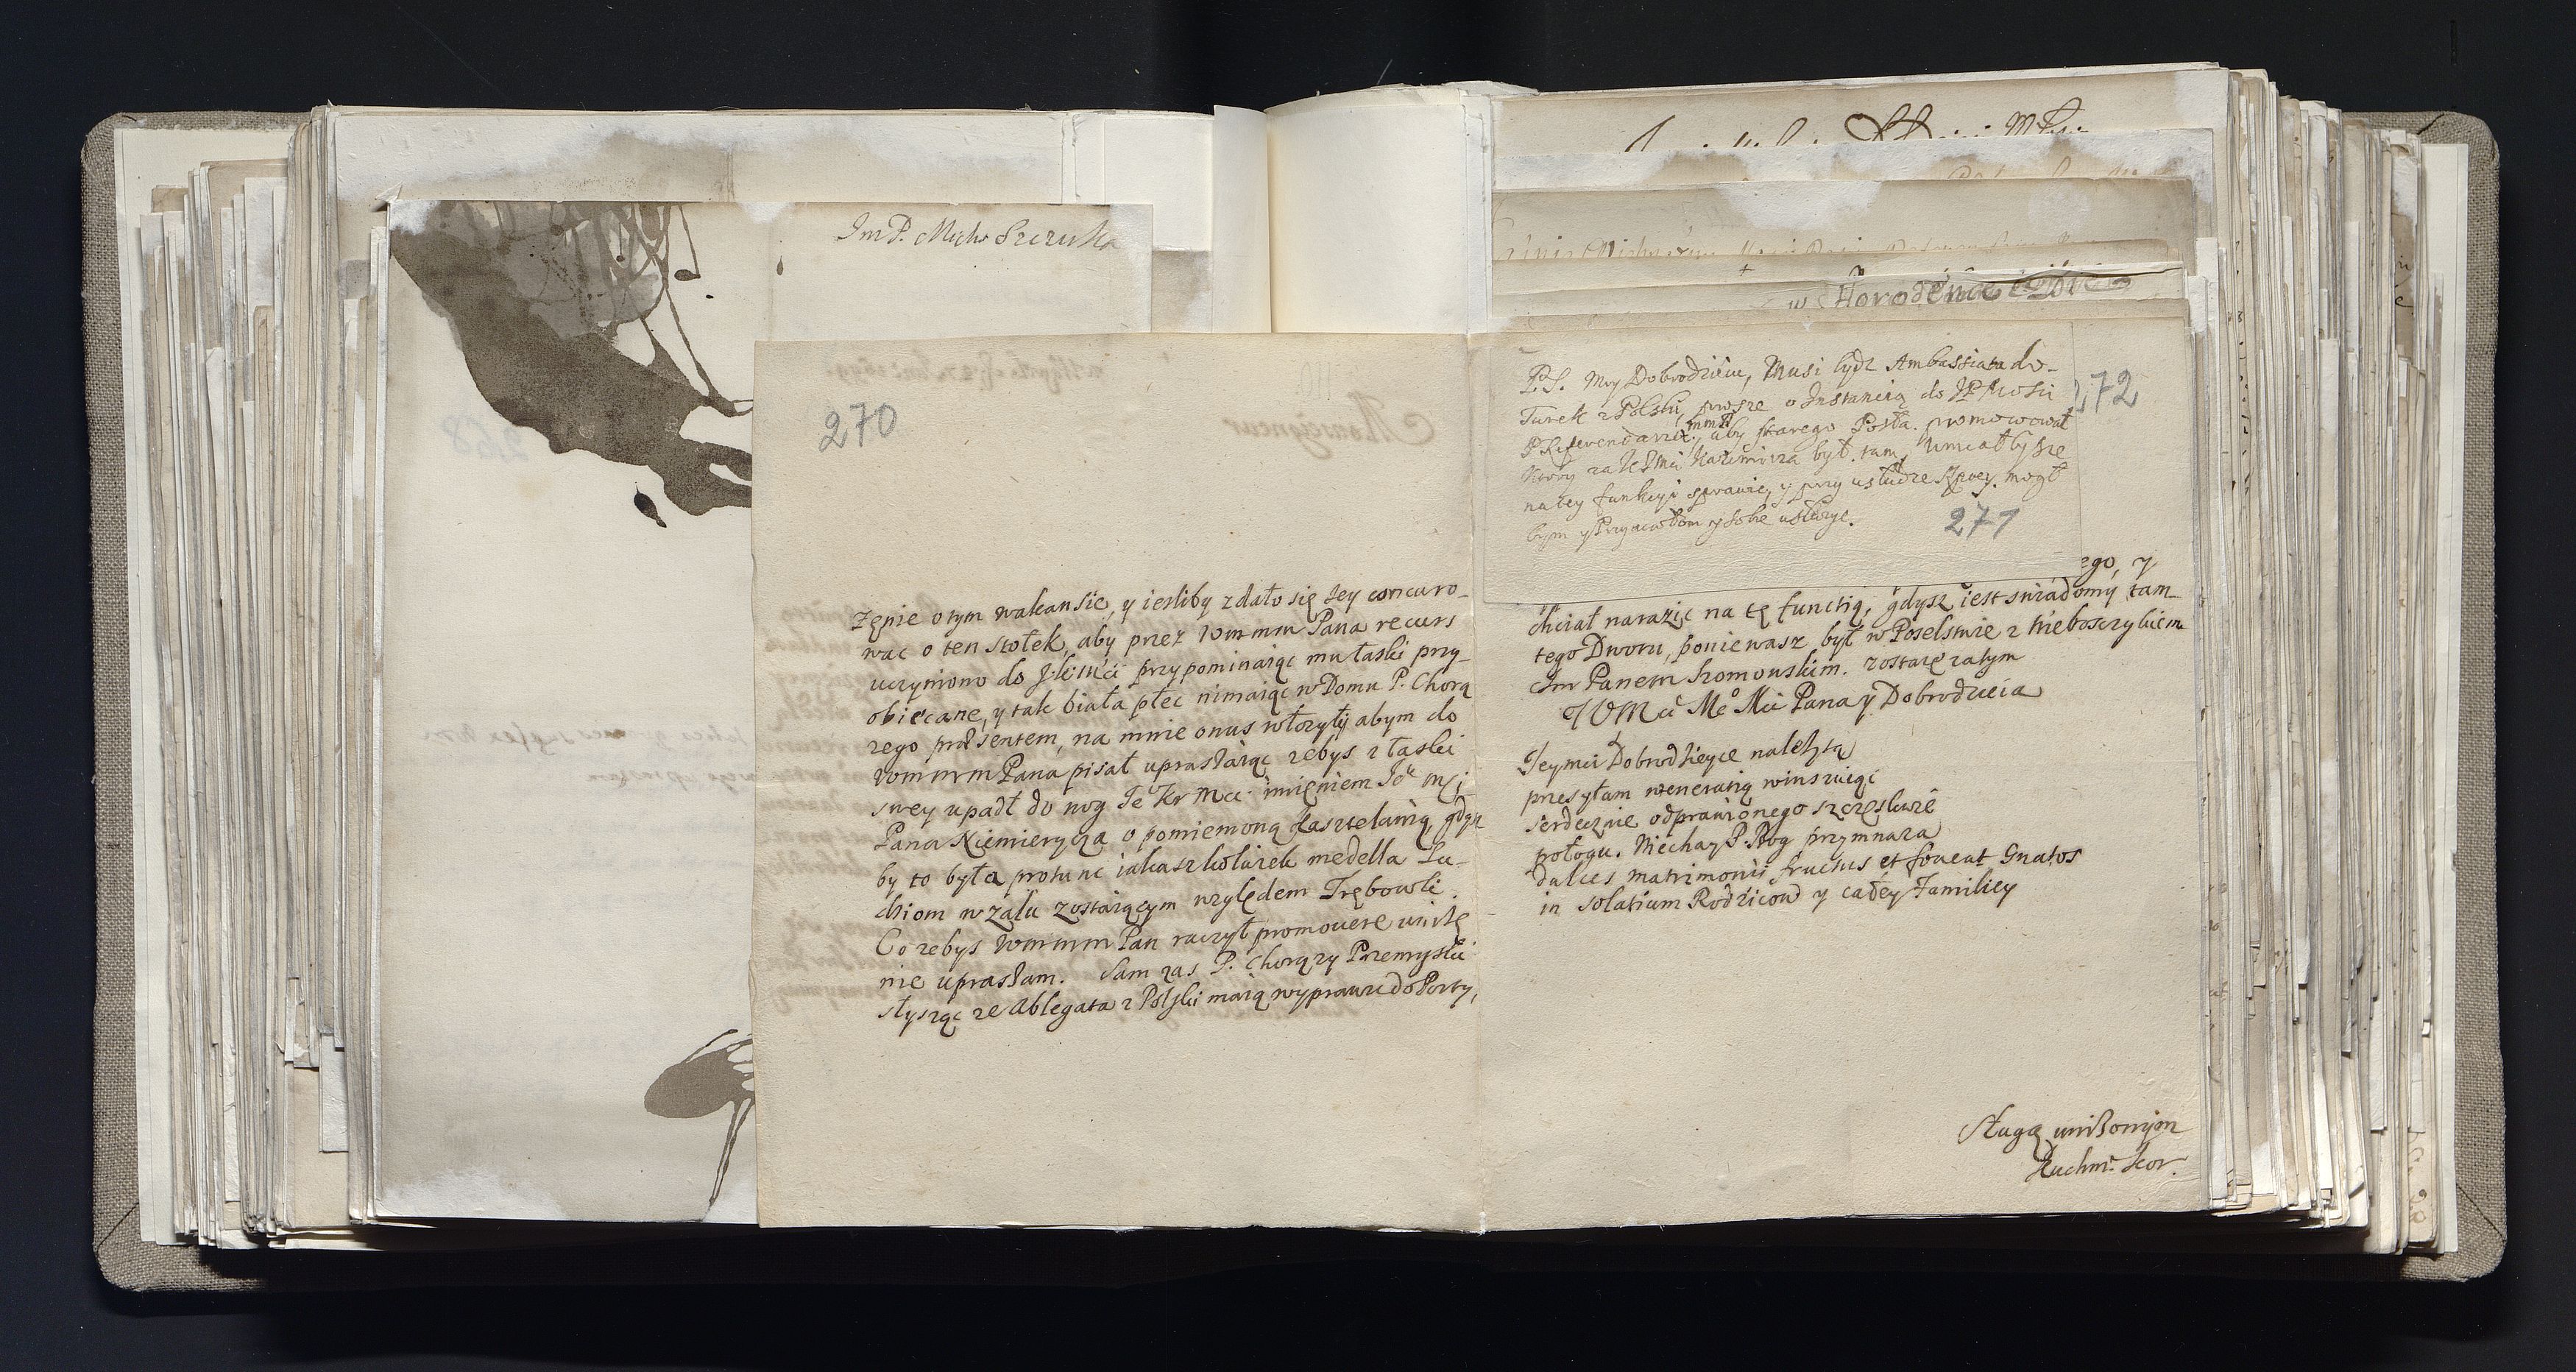 Im P. Mich. Szczuka
270
Zępie o tym wakansie, y iesliby zdało się Jey concuro-
wac o ten stołek, aby przez Wmmm Pana recurs
uczyniono do J.k.Mći przypominaiąc mu łaski przy-
obiecane, y tak biała płec nimaiąc w Domu P. Chorą
zego præsentem, na mnie onus włozyły abym do
Wmmm Pana pisał upraszaiąc zebys z łaski
swey upadł do nog Je Kr Mci imięniem
Pana Niemierycza o pomiemoną Kasztelanią, gdyz
by to była protunc iakasz kolwiek medella Lu-
dziom w zalu zostaiącym względem Trębowli.
Co zebys Wmmm Pan raczył promouere unizę
nie upraszam. Sam zas P. Chorązy Przemyski
słysząc ze Ablegata z Polski maią wyprawic do Porty,
w Horodence
P.S. Moy Dobrodzieiu, Musi bydz Ambassiata do
Turek z Polski, prosze o Instancią do JP Mosci
P Referendarza, mmP aby starego Posła promowował
Ktory za Kazimierza był tam, umiałby sze
na tey funkcyi sprawic, y przy usłudze mogł
bym y Przyiacielom y sobie usłuzyc.
272
271
ego, y
chciał narazic na tę functią, gdysz iest swiadomy tam
tego Dworu, poniewasz był w Poselstwie z Nieboszczykiem
Im Panem Szomowskim. zostaię zatym
WMci Me Mci Pana y Dobrodzieia
Jeymci Dobrodzieyce nalezytą
przesyłam weneratią winszuiąc
serdecznie odprawionego szczęsliwie
połogu. Niechay P. Bog przymnaza
dulces matrimonii fructus, et foueat Gnatos
in solatium Rodzicow y całey Familiey
Sługą unizonym
Kuchm. kor.